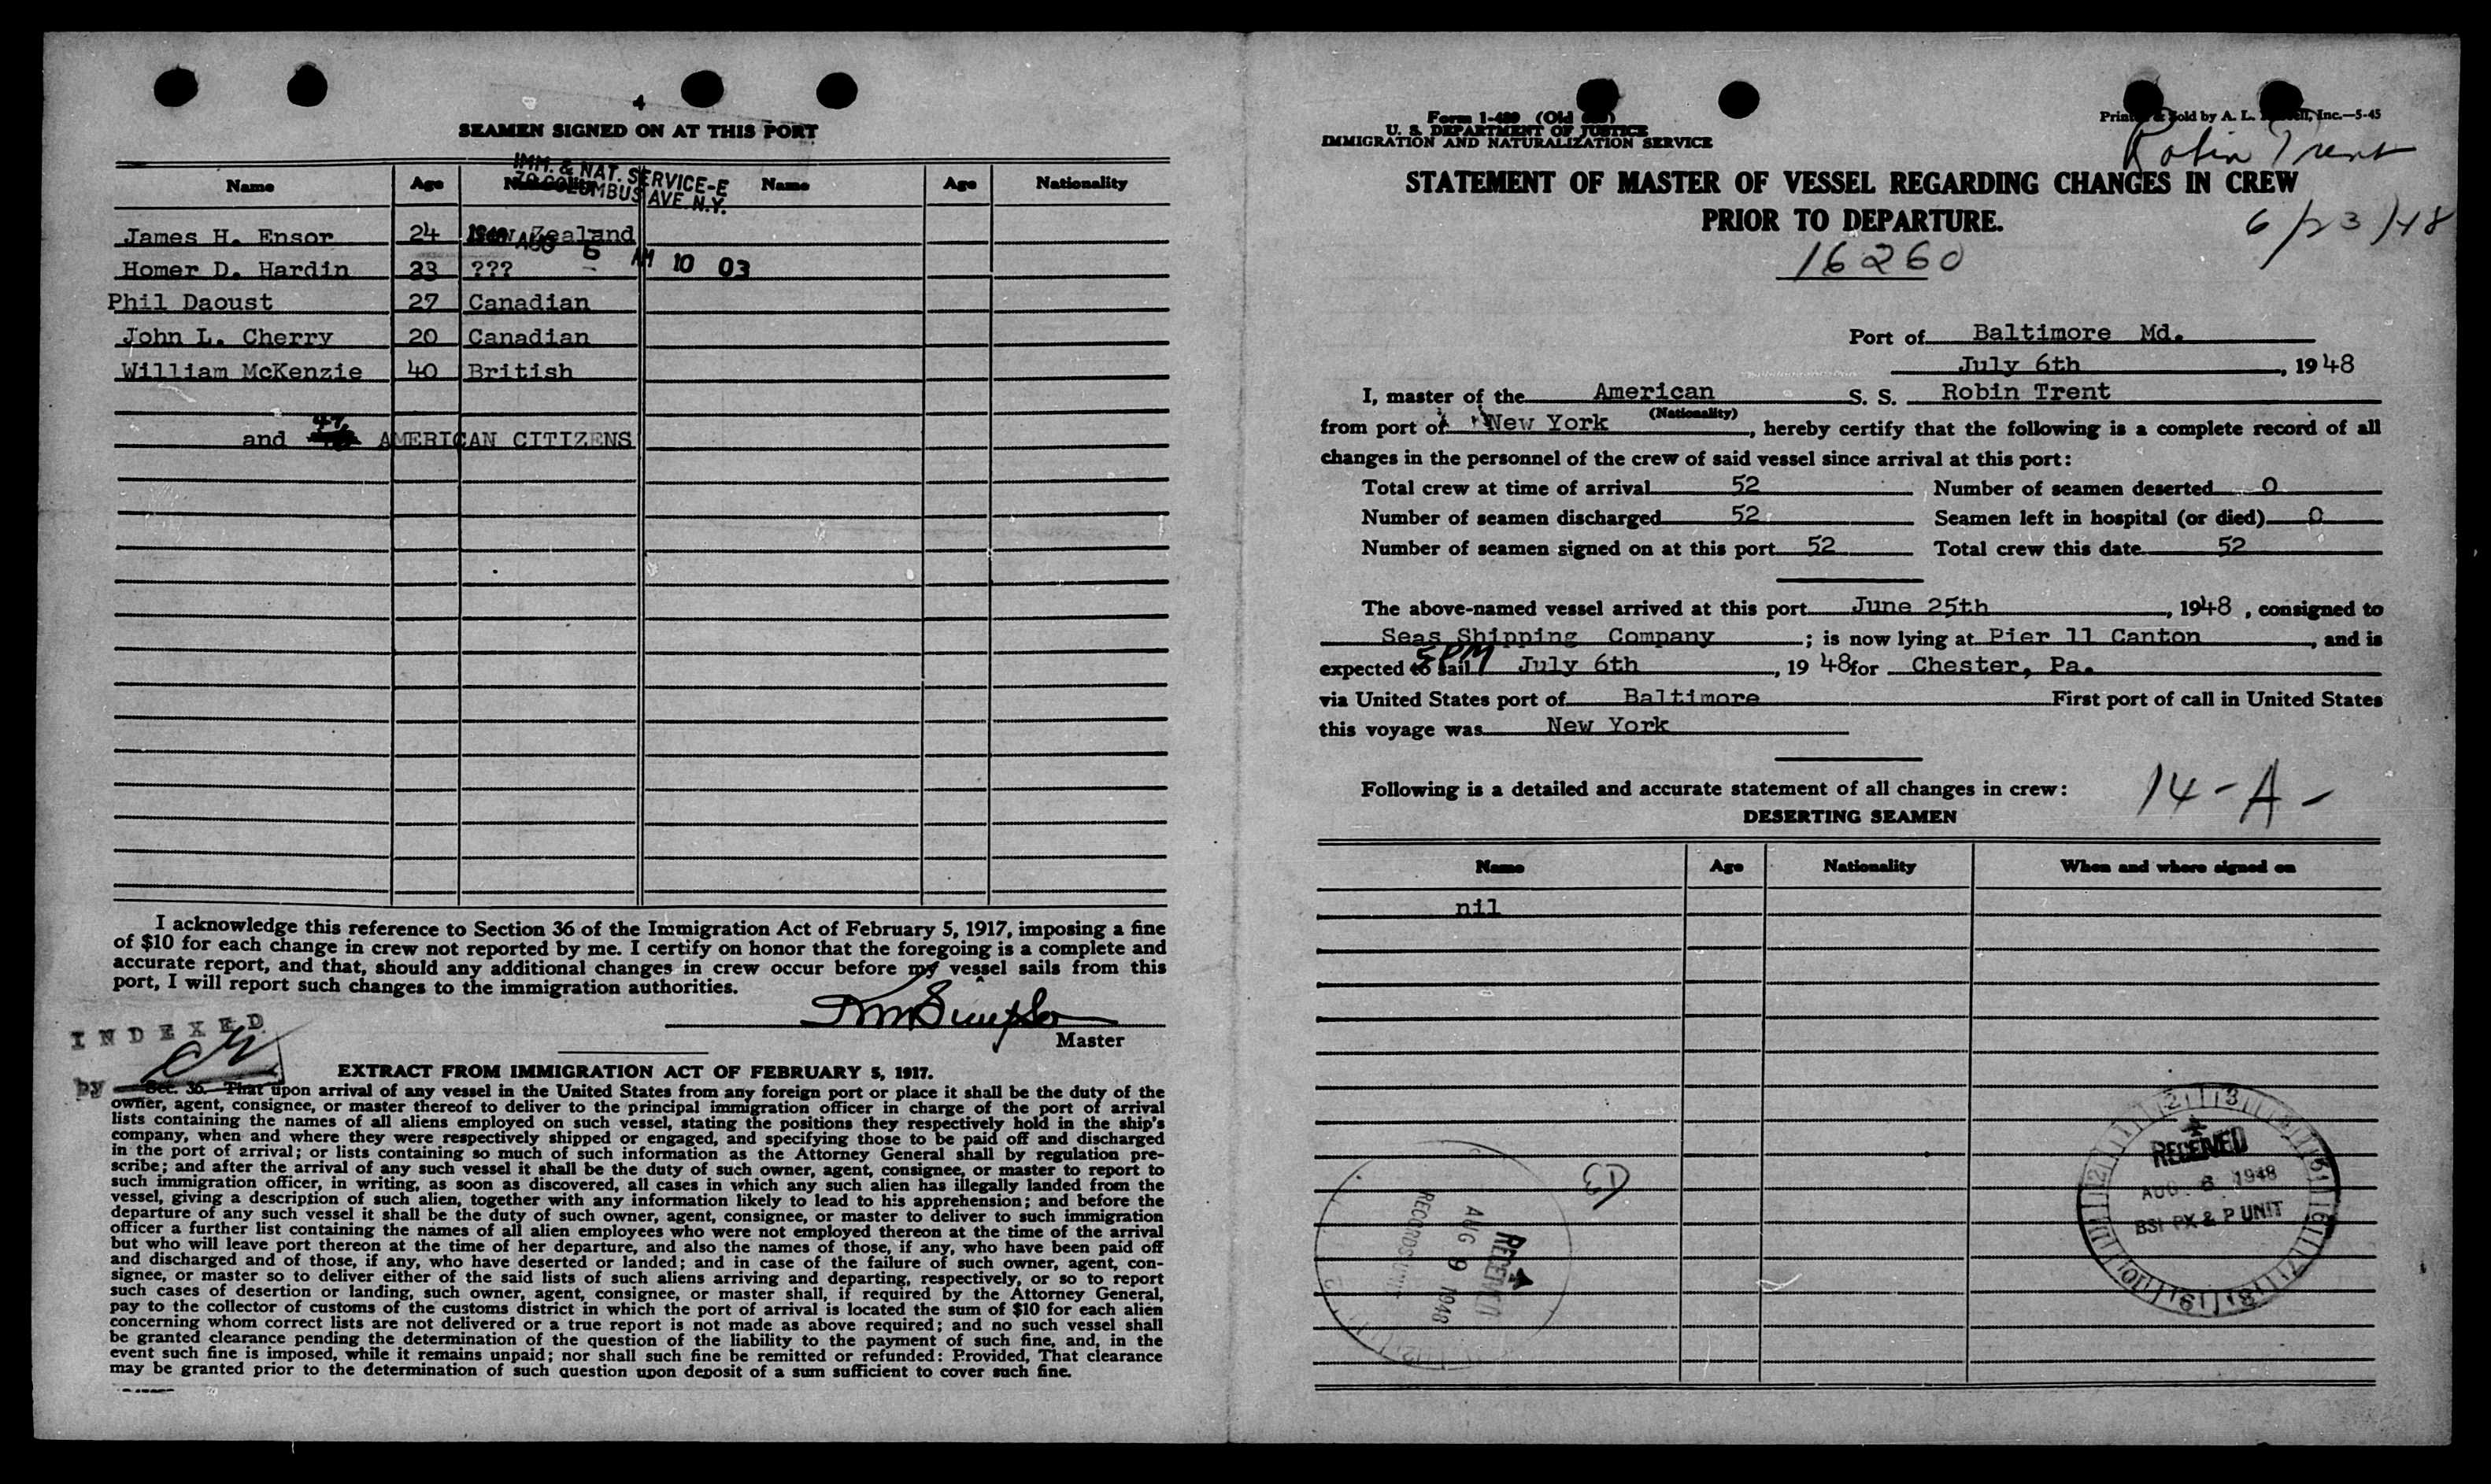 4
SEAMEN SIGNED ON AT THIS PORT
IMM. & NAT. SERVICE-E
70 COLUMBUS AVE. N.Y.
Name Age Nationality Name Age Nationality
James H. Ensor 24 New Zealand
1948 AUG 6 AM 10 03
Homer D. Hardin 23 ???
Phil Daoust 27 Canadian
John L. Cherry 20 Canadian
William McKenzie 40 British
47
and AMERICAN CITIZENS
I acknowledge this reference to Section 36 of the Immigration Act of February 5, 1917, imposing a fine
of $10 for each change in crew not reported by me. I certify on honor that the foregoing is a complete and
accurate report, and that, should any additional changes in crew occur before my vessel sails from this
port, I will report such changes to the immigration authorities.
Master
INDEXED
by
EXTRACT FROM IMMIGRATION ACT OF FEBRUARY 5, 1917.
Sec. 36. That upon arrival of any vessel in the United States from any foreign port or place it shall be the duty of the
owner, agent, consignee, or master thereof to deliver to the principal immigration officer in charge of the port of arrival
lists containing the names of all aliens employed on such vessel, stating the positions they respectively hold in the ship's
company, when and where they were respectively shipped or engaged, and specifying those to be paid off and discharged
in the port of arrival; or lists containing so much of such information as the Attorney General shall by regulation pre-
scribe; and after the arrival of any such vessel it shall be the duty of such owner, agent, consignee, or master to report to
such immigration officer, in writing, as soon as discovered, all cases in which any such alien has illegally landed from the
vessel, giving a description of such alien, together with any information likely to lead to his apprehension; and before the
departure of any such vessel it shall be the duty of such owner, agent, consignee, or master to deliver to such immigration
officer a further list containing the names of all alien employees who were not employed thereon at the time of the arrival
but who will leave port thereon at the time of her departure, and also the names of those, if any, who have been paid off
and discharged and of those, if any, who have deserted or landed; and in case of the failure of such owner, agent, con-
signee, or master so to deliver either of the said lists of such aliens arriving and departing, respectively, or so to report
such cases of desertion or landing, such owner, agent, consignee, or master shall, if required by the Attorney General,
pay to the collector of customs of the customs district in which the port of arrival is located the sum of $10 for each alien
concerning whom correct lists are not delivered or a true report is not made as above required; and no such vessel shall
be granted clearance pending the determination of the question of the liability to the payment of such fine, and, in the
event such fine is imposed, while it remains unpaid; nor shall such fine be remitted or refunded: Provided, That clearance
may be granted prior to the determination of such question upon deposit of a sum sufficient to cover such fine.
Form I-489 (Old
U. S. DEPARTMENT OF JUSTICE
IMMIGRATION AND NATURALIZATION SERVICE
Printed & Sold by A. L. Inc.—5-45
Robin Trent
STATEMENT OF MASTER OF VESSEL REGARDING CHANGES IN CREW
PRIOR TO DEPARTURE.
6/23/48
16260
Port of Baltimore Md.
July 6th, 1948
I, master of the American S. S. Robin Trent
(Nationality)
from port of New York, hereby certify that the following is a complete record of all
changes in the personnel of the crew of said vessel since arrival at this port:
Total crew at time of arrival 52 Number of seamen deserted 0
Number of seamen discharged 52 Seamen left in hospital (or died) 0
Number of seamen signed on at this port 52 Total crew this date 52
The above-named vessel arrived at this port June 25th, 1948, consigned to
Seas Shipping Company; is now lying at Pier 11 Canton, and is
5PM
expected to sail July 6th, 1948 for Chester, Pa.
via United States port of Baltimore First port of call in United States
this voyage was New York
Following is a detailed and accurate statement of all changes in crew:
14-A-
DESERTING SEAMEN
Name Age Nationality When and where signed on
nil
RECEIVED
AUG 6 1948
BSI PX & P UNIT
RECEIVED
AUG 9 1948
RECORDS UNIT